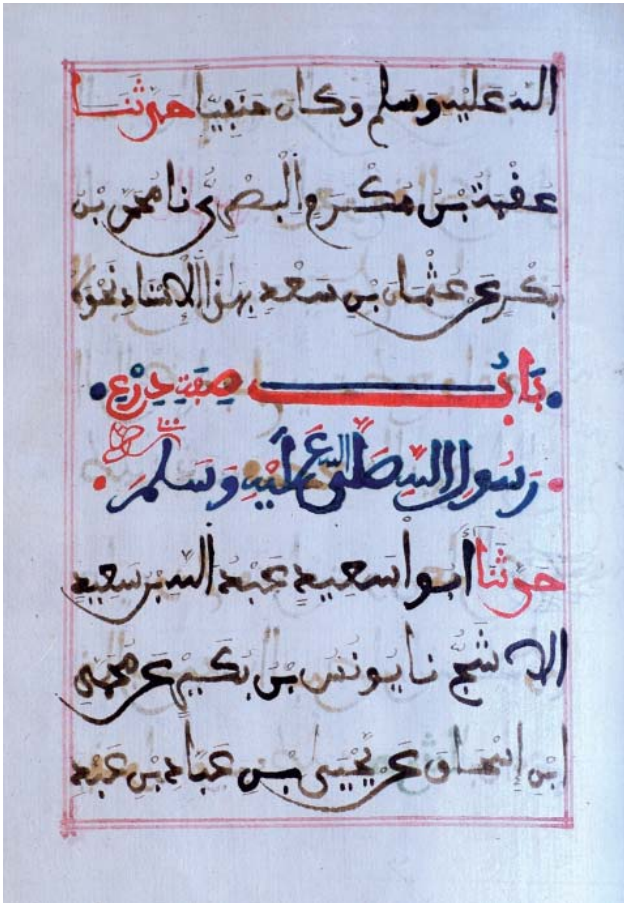 الله عليه وسلم وكان حنفيا حدثنا
عقبة بن مكرم البصري نا محمد بن
بكر عن عثمان بن سعد بهذا الإسناد نحوه
باب صفة درع
رسول الله صلى الله عليه وسلم
حدثنا أبوا سعيد عبد الله بن سعيد
الاشج نا يونس بن بكير عن محمد
ابن إسحاق عن يحيى بن عباد بن عبد